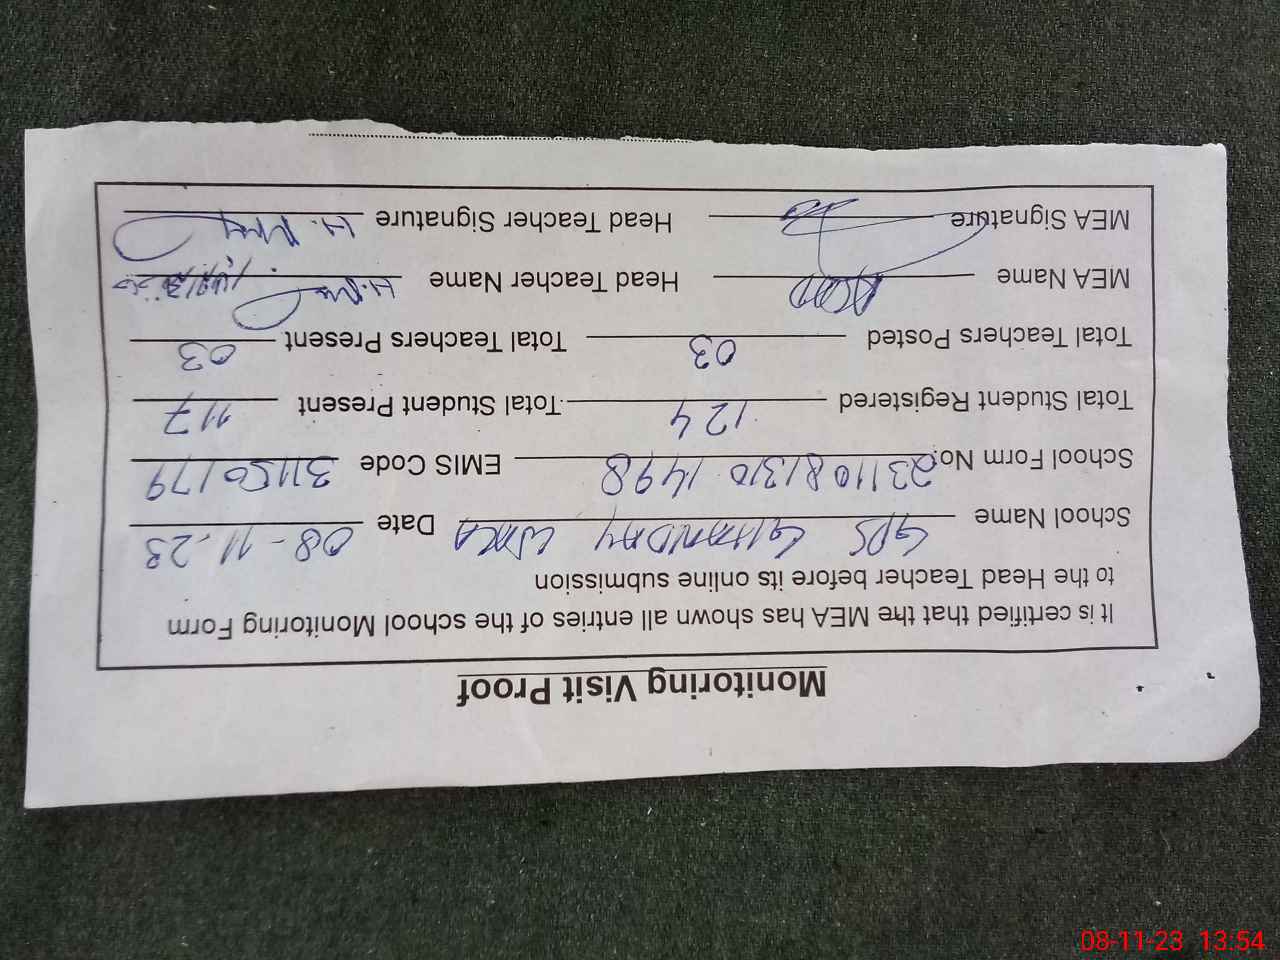 Monitoring Visit Proof
It is certified that the MEA has shown all entries of the school Monitoring Form
to the Head Teacher before its online submission
School Name GPS GHANDAY WALA Date 08-11-23
School Form No. 2311081310 1498 EMIS Code 31150179
Total Student Registered 124 Total Student Present 117
Total Teachers Posted 03 Total Teachers Present 03
MEA Name Head Teacher Name
MEA Signature Head Teacher Signature
08-11-23 13:54